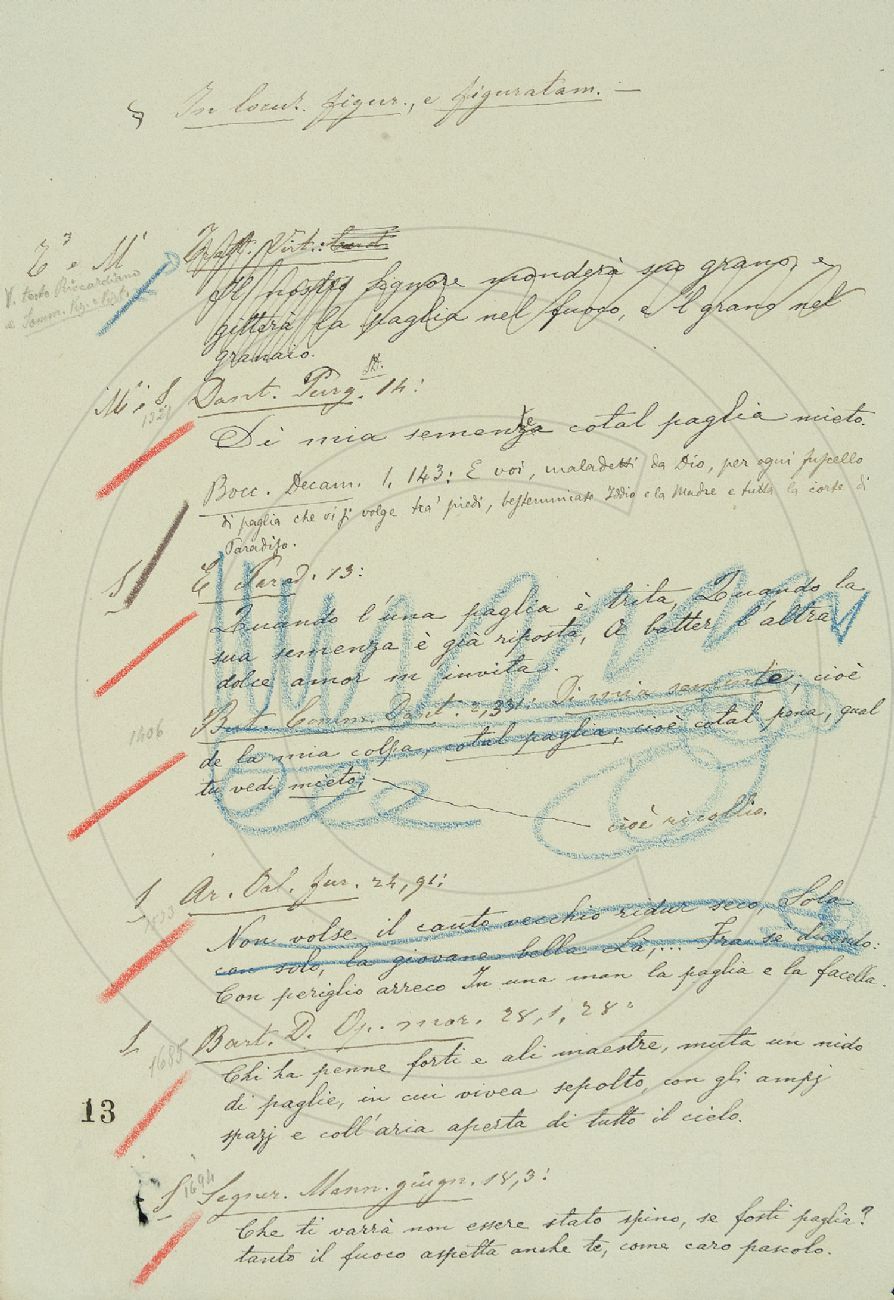 § In locuz. figur., e figuratam. —
T³ e M¹ Tratt. Virt.:
V. testo Riccardiano
e Somm.
Il nostro Signore monderà suo grano, e
gitterà la paglia nel fuoco, e 'l grano nel
granaio.
M¹ e S. Dant. Purg. 14:
1321
Di mia semenza cotal paglia mieto.
Bocc. Decam. 1, 143: E voi, maladetti da Dio, per ogni fuscello
di paglia che vi si volge tra' piedi, bestemmiate Iddio e la Madre e tutta la corte di
Paradiso.
S E Parad. 13:
Quando l'una paglia è trita, Quando la
sua semenza è già riposta, A batter l'altra
dolce amor m'invita.
1406
But. Comm. Dant. 2, 33: Di mia semente, cioè
de la mia colpa, cotal paglia, cioè cotal pena, qual
tu vedi, mieto,
cioè ricoglio.
S Ar. Orl. fur. 24, 91:
Non volse il cauto vecchio ridur seco, Sola
con solo, la giovane bella Là,... Fra se dicendo:
Con periglio arreco In una man la paglia e la facella.
S 1685 Bart. D. Op. mor. 28, 1, 28:
Chi ha penne forti e ali maestre, muta un nido
di paglie, in cui vivea sepolto, con gli ampj
spazj e coll'aria aperta di tutto il cielo.
13
S 1694 Segner. Mann. giugn. 18, 3:
Che ti varrà non essere stato spino, se fosti paglia?
tanto il fuoco aspetta anche te, come caro pascolo.